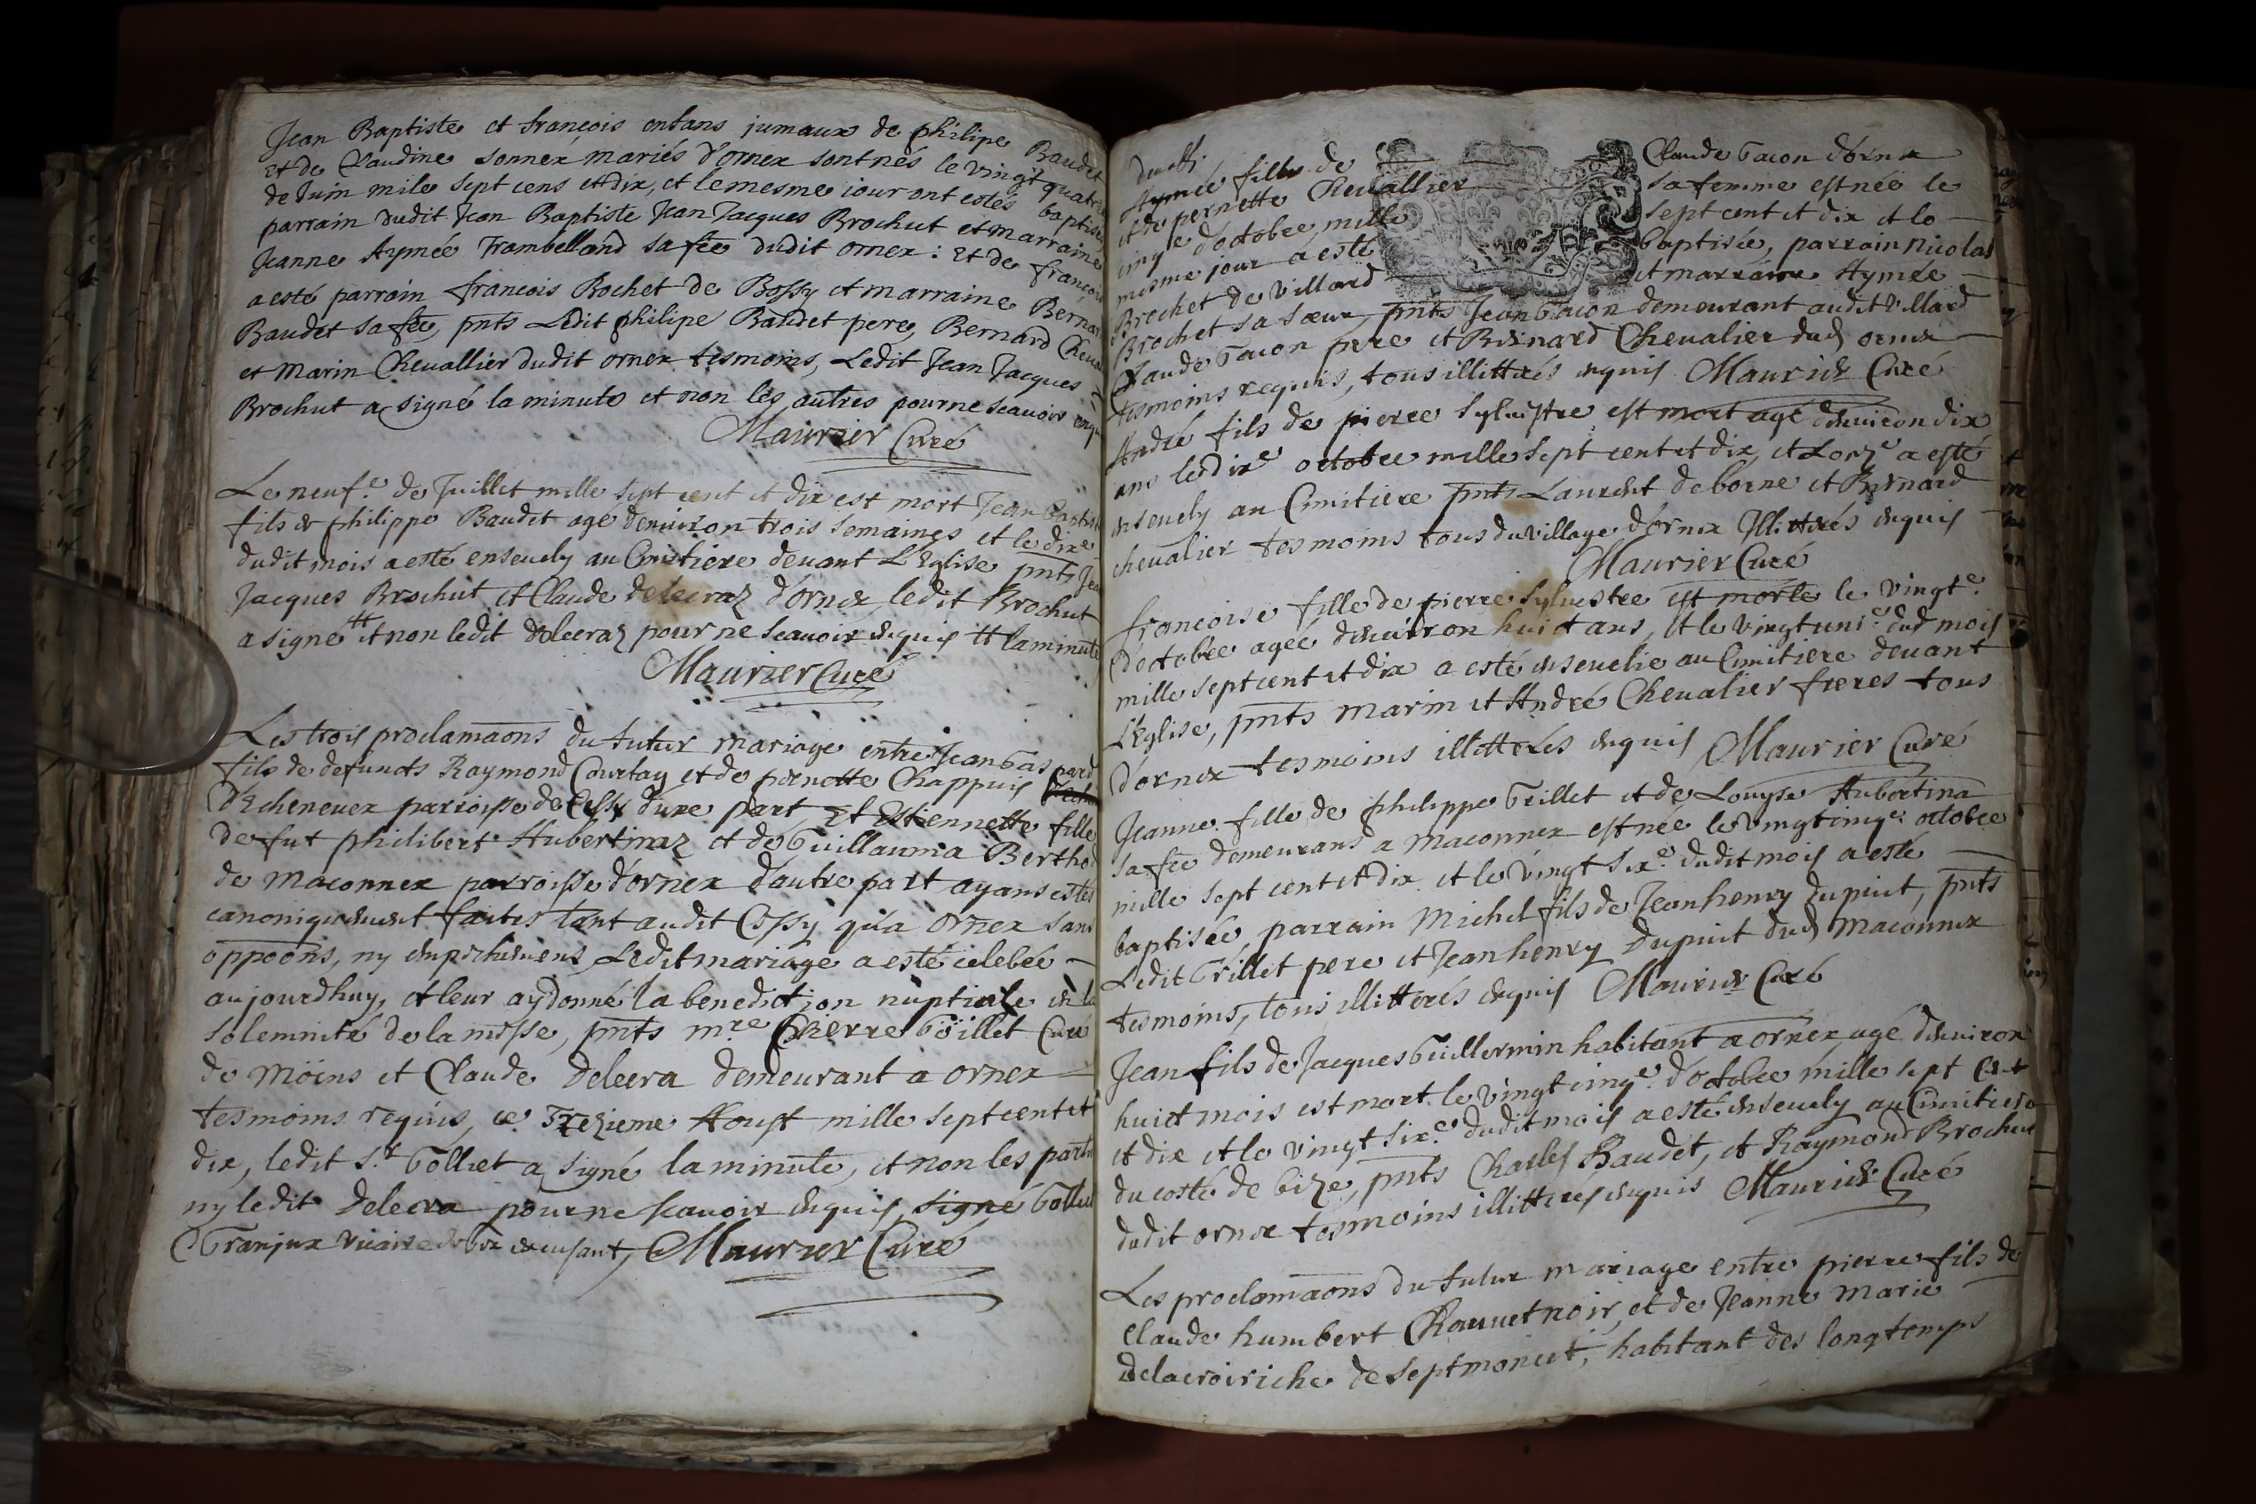 Jean Baptiste et françois enfans jumaux de philipe Baudet
et de Claudine Sonnex mariés d'ornex sont nés le vingt quatre
de Juin mile sept cens et dix, et le mesme jour ont estés baptisés
parrain dudit Jean Baptiste Jean Jacques Brochut et marraine
Jeanne Aymée Trambelland sa fẽe dudit ornex : et de françois
a esté parrain françois Rochet de Bossy et marraine Bernar
Baudet sa fẽe, pnts Ledit philipe Baudet pere, Bernard Cheua
et Marin Cheuallier dudit ornex tesmoins, Ledit Jean Jacques
Brochut a signé la minute et non les autres pour ne scauoir enqu
Maurier Curé
Le neuf.e de Juillet mille sept cent et dix est mort Jean Baptis
fils de philippe Baudet agé denuiron trois semaines et le dixe
dudit mois a esté enseuely au Cimitiere deuant L'Eglise pnts Jea
Jacques Brochut et Claude delecraz d'ornex, ledit Brochut
a signé # et non ledit delecraz pour ne scauoir enquis # la minute
Maurier Curé
Les trois proclamaõns du futur mariage entre Jean Gaspard
fils de defuncts Raymond Courtay et de pernette Chappuis
d'Echeneuex parroisse de Cessy d'une part, et Estiennette fille
de fut philibert Hubertinaz et de Guillauma Berthod
de maconnex parroisse d'ornex d'autre part ayans estés
canoniquement faites tant audit Cessy qu'a ornex sans
oppoõns, ny empichemens, Ledit mariage a esté celebré
aujourdhuy, et leur ay donné la benediction nuptiale en la
solemnité de la messe, pnts mre Pierre Gollict Curé
de Möens et Claude Delecra demeurant a ornex
tesmoins requis, ce Trezieme Aoust mille sept cent et
dix, ledit S.r Golliet a signé la minute, et non les partie
ny ledit Delecra pour ne scauoir enquis, signé Gollict
Granjux vicaire Maurier Curé
dudit
Aymée fille de Claude Tacon d'ornex
et de pernette Cheuallier sa femme est née le
cinq.e d'octobre mille sept cent et dix et le
mesme jour a esté baptisée, parrain Nicolas
Brochet de Villard et marraine Aymée
Brochet sa soeur, pnts Jean Tacon demeurant audit Villard
Claude Tacon pere et Bernard Cheualier dud ornex
tesmoins requis, tous illitterés enquis Maurier Curé
André fils de pierre Syluestre est mort agé denuiron dix
ans le dixe octobre mille sept cent et dix, et L'onze a esté
enseuely au Cimitiere pnts Laurent deborne et Bernard
cheualier tesmoins tous du village d'ornex Illitterés enquis
Maurier Curé
francoise fille de pierre Syluestre est morte le vingt.e
d'octobre agée denuiron huict ans, et le vingt uni.e dud mois
mille sept cent et dix a esté enseuelie au Cimitiere deuant
L'Eglise, pnts marin et André Cheualier freres tous
d'ornex tesmoins illitterés enquis Maurier Curé
Jeanne fille de philippe Grillet et de Louyse Hubertina
sa fẽe demeurans a maconnex est née le vingt cinq.e octobre
mille sept cent et dix et le vingt six.e dudit mois a esté
baptisée, parrain Michel fils de Jean henry dupuit, pnts
Ledit Grillet pere et Jean henry Dupuit dud maconnex
tesmoins, tous illitterés enquis Maurier Curé
Jean fils de Jacques Guillermin habitant a ornex agé denuiron
huict mois est mort le vingt cinq.e d'octobre mille sept cent
et dix et le vingt six.e dudit mois a esté enseuely au Cimitiere
du costé de bize, pnts Charles Baudet, et Raymond Brochut
dudit ornex tesmoins illitterés enquis Maurier Curé
Les proclamaõns du futur mariage entre pierre fils de
Claude humbert Chauuetnoir, et de Jeanne Marie
delacroiriche de Septmoncet, habitant des longtemps